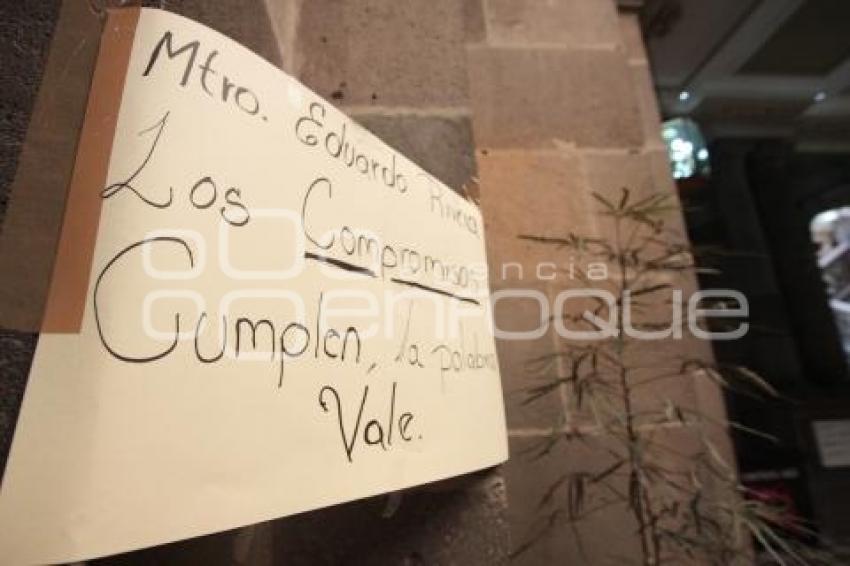 Mtro. Eduardo Rivera
Los Compromisos
Cumplen, la palabra
Vale.
agencia
enfoque